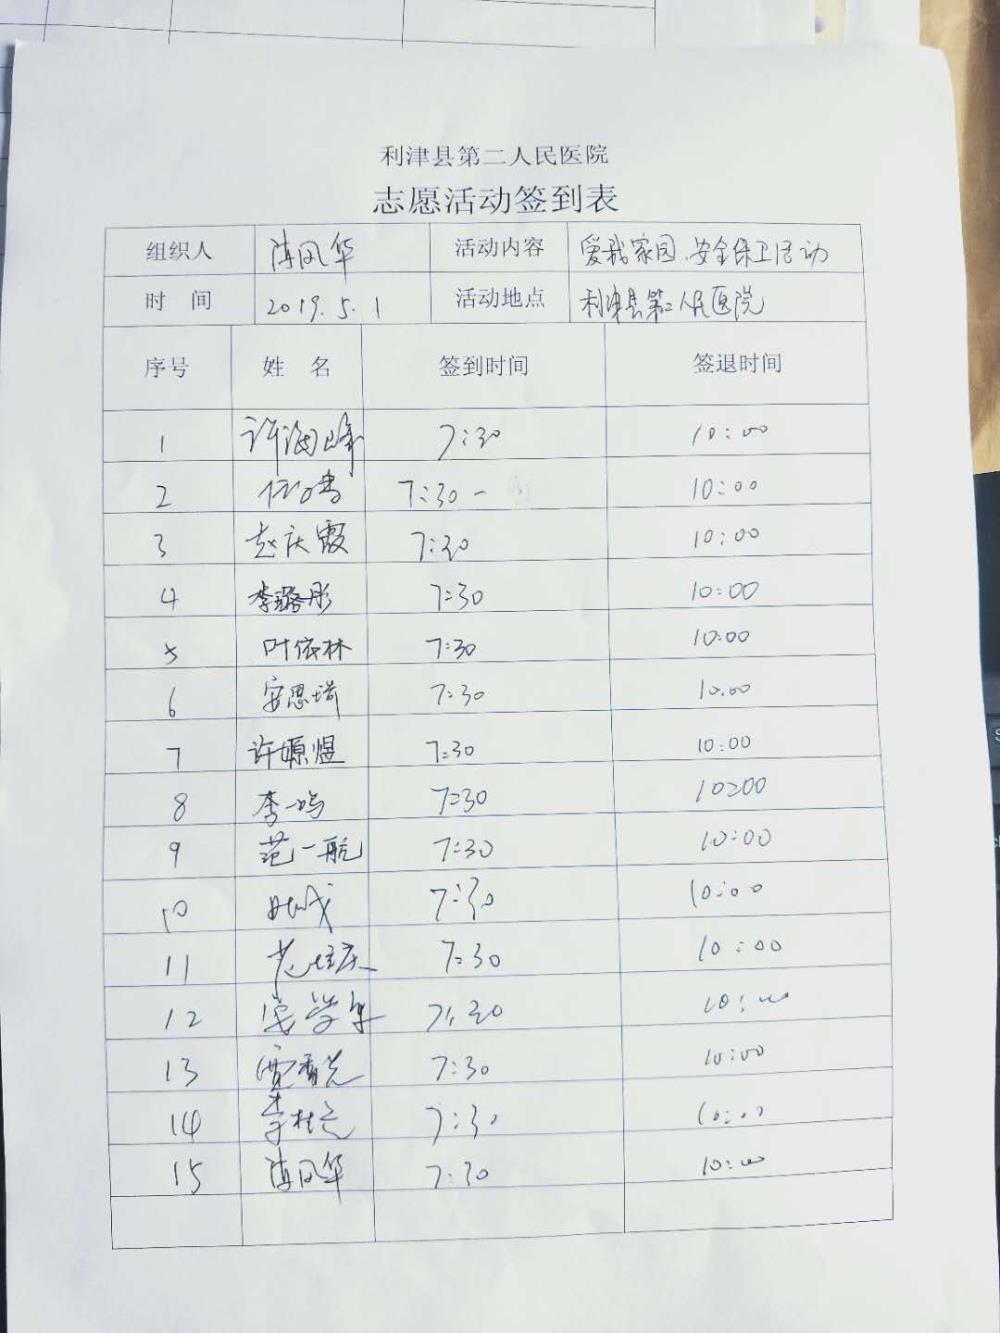 利津县第二人民医院
志愿活动签到表
组织人 陈凤华 活动内容 爱我家园、安全保卫活动
时 间 2019.5.1 活动地点 利津县第二人民医院
序号 姓 名 签到时间 签退时间
1 许海峰 7:30 10:00
2 7:30- 10:00
3 赵庆霞 7:30 10:00
4 李璐彤 7:30 10:00
5 叶依林 7:30 10:00
6 安思琦 7:30 10.00
7 许嫄煜 7:30 10:00
8 李一鸣 7:30 10:00
9 范一航 7:30 10:00
10 7:30 10:00
11 7:30 10:00
12 7:30 10:00
13 贾香兰 7:30 10:00
14 7:30 10:00
15 陈凤华 7:30 10:00